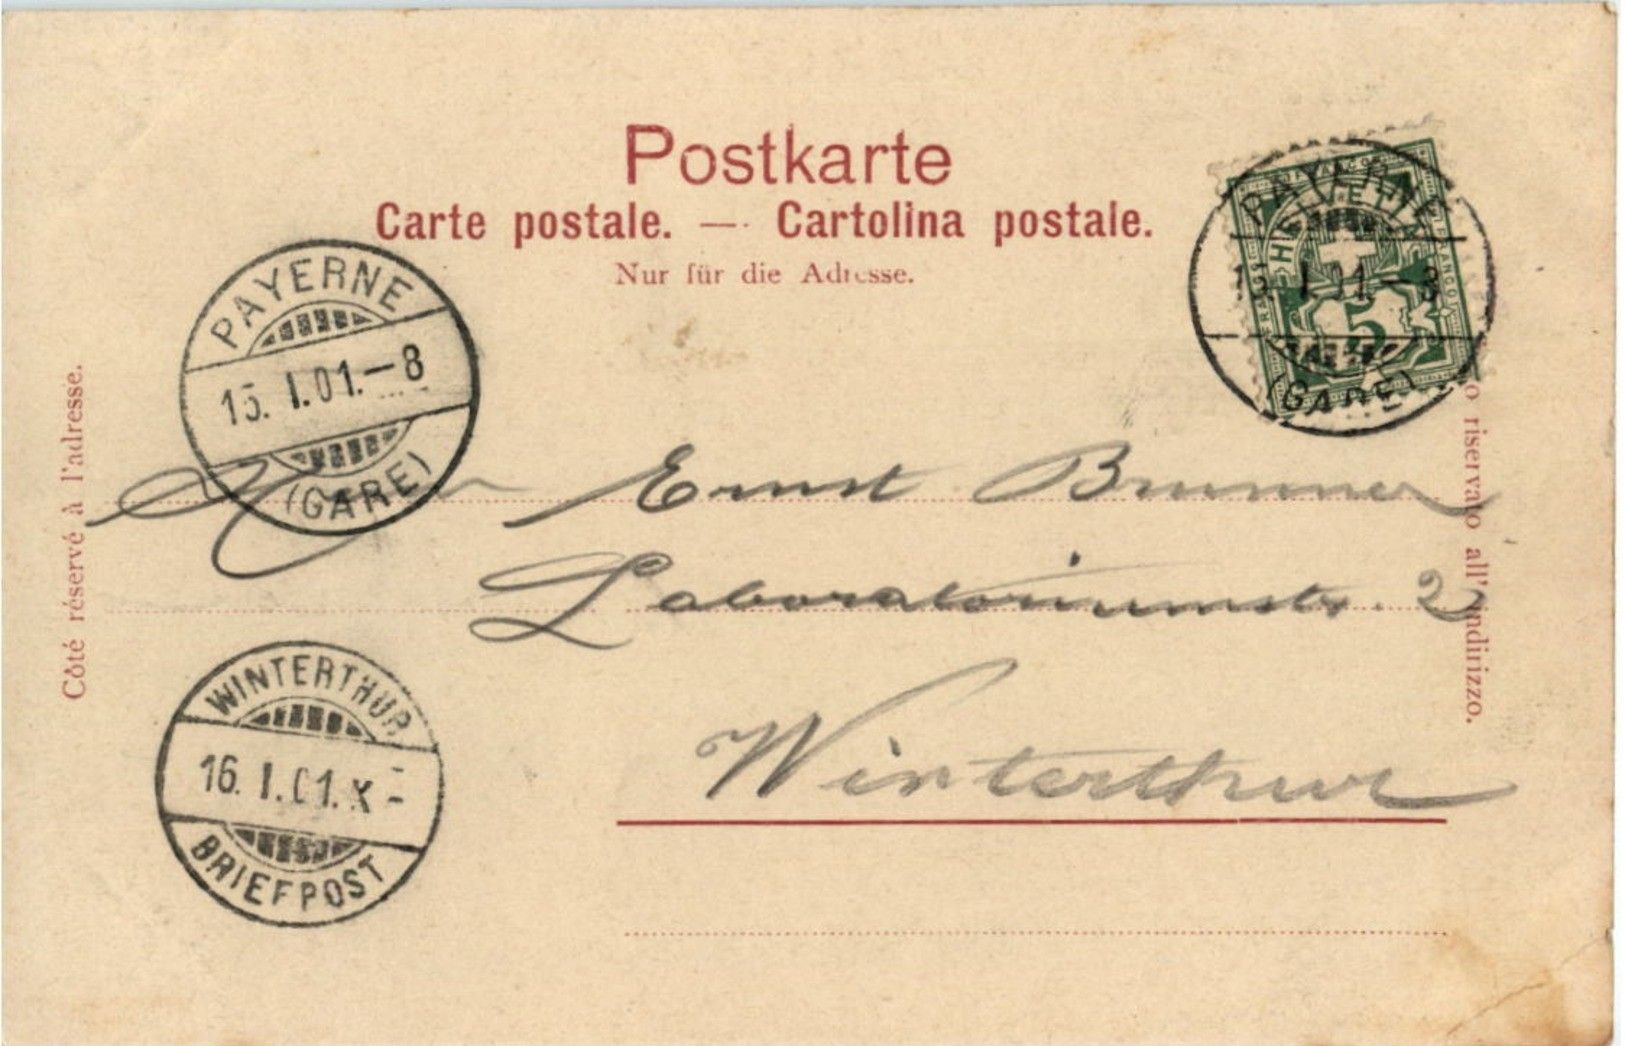 Postkarte
Carte postale. — Cartolina postale.
Nur für die Adresse.
PAYERNE
15. I.01.—8
(GARE)
PAYERNE
I.01.—8
(GARE)
HELVETIA
FRANCO
5
Côté réservé à l'adresse.
riservato all'indirizzo.
Herrn Ernst Brunner
Laboratoriumstr. 2
Winterthur
WINTERTHUR
16. I.01.X-
BRIEFPOST